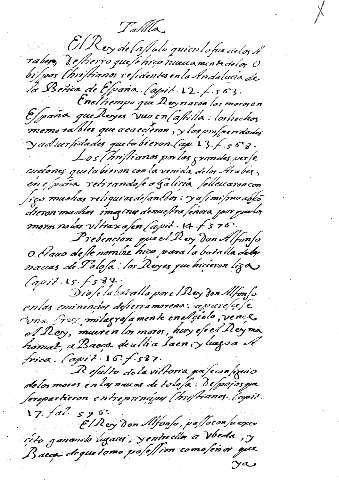 Tablilla
El Rey de
destierro que se hizo nuevamente de los O
bispos Christianos residentes en la Andalucia de
la Betica de España. Capit. 12. f. 563.
En el tiempo que Reynaron los moros en
España que Reyes vuo en Castilla: los hechos
memorables que acaecieron, y las prosperidades
y adversidades que tubieron Cap. 13. f. 568.
Los Christianos por las grandes perse
cuciones que tubieron con la venida de los Arabes,
en españa retirandose a galicia se llevaron con
sigo muchas reliquias de santos: y asimismo
dieron muchas imagines de nuestra señora por que los
moros no las ultraxasen Capit. 14. f. 576.
Prebencion que el Rey Don Alfonso
o Uabo deste nombre hizo para la batalla de las
nabas de Tolosa: los Reyes que hicieron liga
Capit. 15. f. 584.
Diose la batalla por el Rey Don Alfonso
en las eminencias de sierra morena: aparecese
una Cruz, milagrosamente en el cielo, vence
el Rey, mueren los moros, huyese el Rey ma
homat, a Baeza de alli a Iaen, y luego a A
frica. Capit. 16. f. 587.
Resulto de la vittoria
de los moros en las nabas de tolosa: Despojos que
se repartieron entre principes Christianos. Capit.
17. fol. 596.
El Rey Don Alfonso, passo con su exer
cito ganando lugares, y entro en a Vbeda, y
Baeza de que tomo possession como señor que
ya